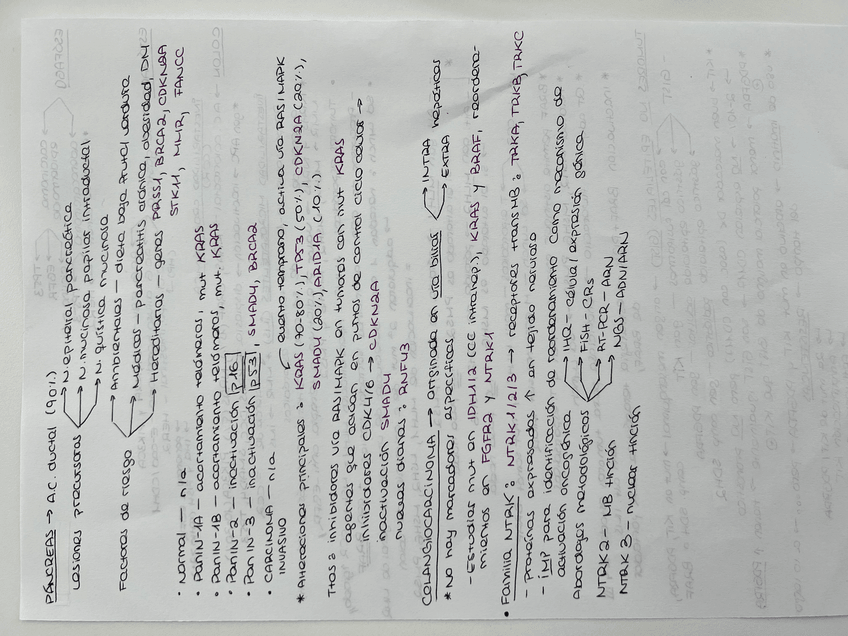 PÁNCREAS → A.C. ductal (90%)
Lesiones precursoras → N. epitelial pancreática
→ N. mucinosa papilar intraductal
→ N. quística mucinosa
Factores de riesgo → Ambientales - dieta baja fruta/verdura
→ Médicos - pancreatitis crónica, obesidad, DM
→ Hereditarios - genes PRSS1, BRCA2, CDKN2A
STK11, MLH1, FANCC
• Normal - n/a
• PanIN-1A - acortamiento telómeros, mut KRAS
• PanIN-1B - acortamiento telómeros, mut. KRAS
• PanIN-2 - inactivación p16
• PanIN-3 - inactivación p53, SMAD4, BRCA2
• CARCINOMA - n/a
INVASIVO
evento temprano, activa vía RAS/MAPK
* Alteraciones principales: KRAS (70-80%), TP53 (50%), CDKN2A (20%),
SMAD4 (20%), ARID1A (10%)
Ttos: inhibidores vía RAS/MAPK en tumores con mut KRAS
agentes que actúan en puntos de control ciclo celular →
inhibidores CDK4/6 → CDKN2A
inactivación SMAD4
nuevas dianas: RNF43
COLANGIOCARCINOMA → originada en vía biliar → INTRA hepáticos
→ EXTRA
* No hay marcadores específicos
- Estudiar mut en IDH1/2 (CC intrahep.), KRAS y BRAF, reordena-
mientos en FGFR2 y NTRK1
• Familia NTRK: NTRK1/2/3 → receptores transMB: TRKA, TRKB, TRKC
- proteínas expresadas ↑ en tejido nervioso
- IMP para identificación de reordenamiento como mecanismo de
activación oncogénica
Abordajes metodológicos → IHQ - célula/expresión génica
→ FISH - CRs
→ RT-PCR - ARN
→ NGS - ADN/ARN
NTRK2 - MB tinción
NTRK3 - nuclear tinción